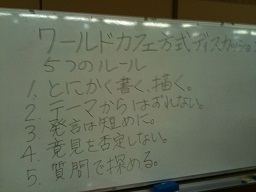 ワールドカフェ方式ディスカッション
5つのルール
1. とにかく書く、描く。
2. テーマからはずれない。
3. 発言は短めに。
4. 意見を否定しない。
5. 質問で深める。